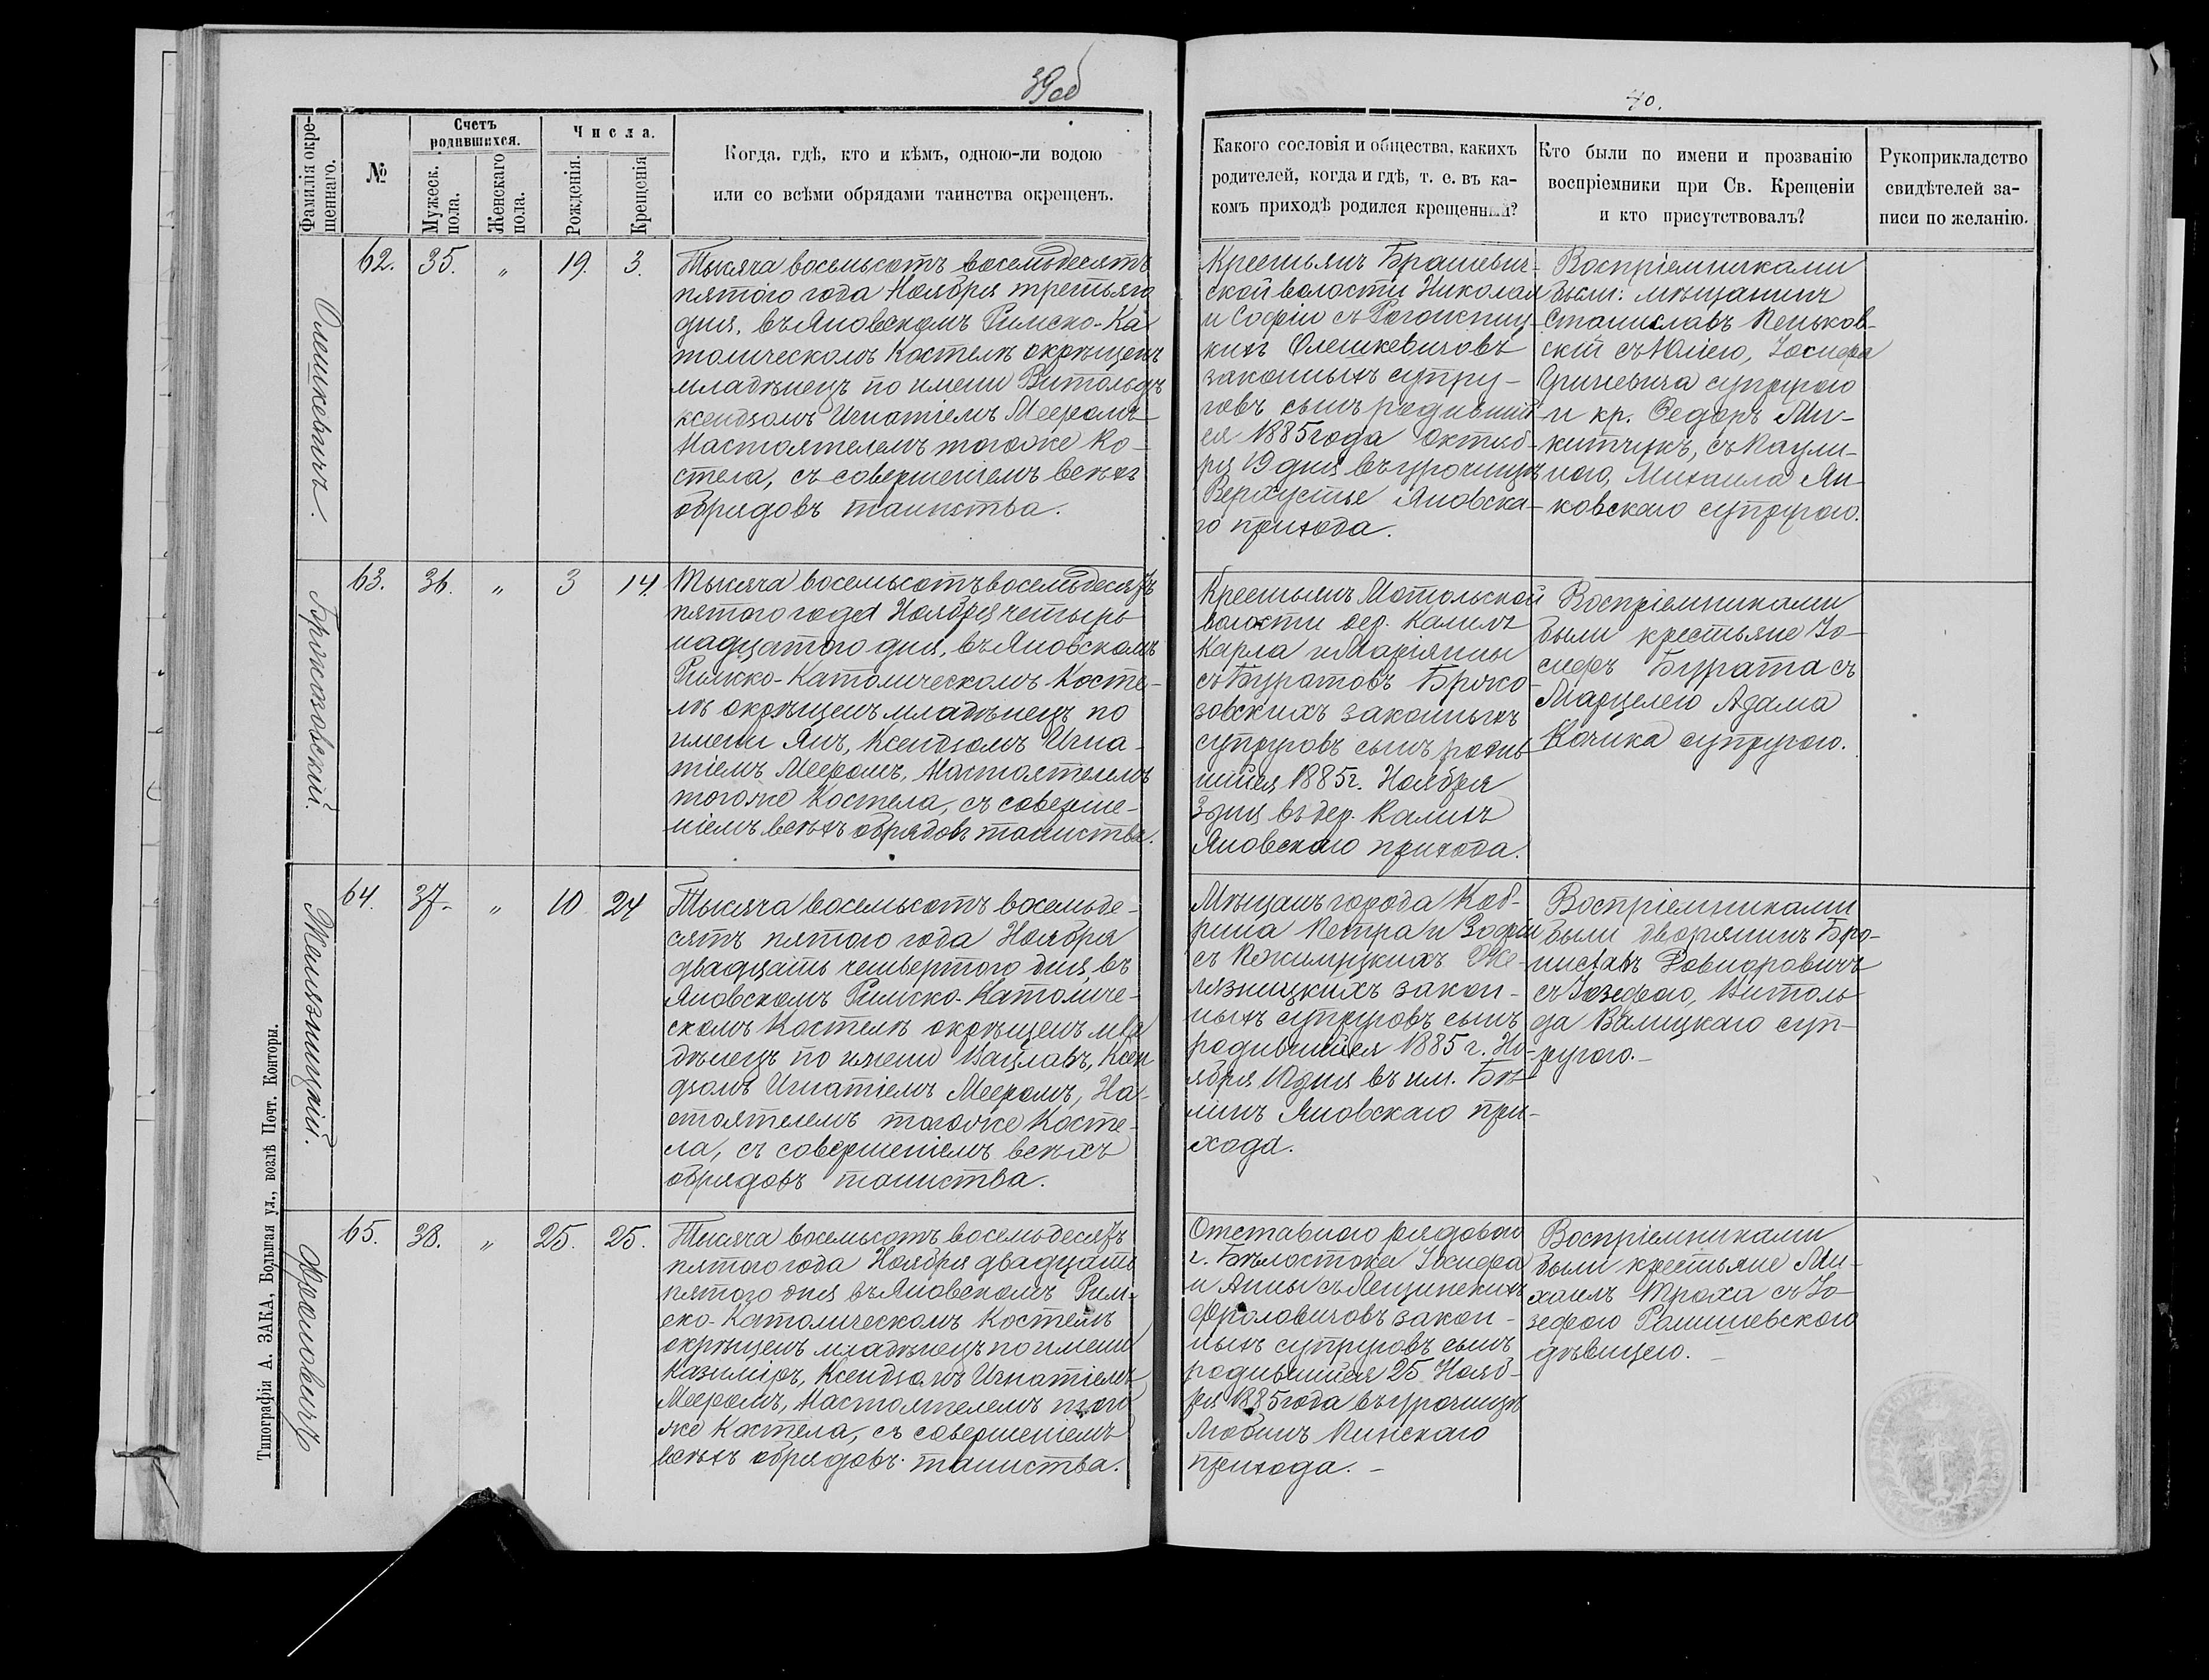 39об
40.
Фамилія окре-
щеннаго.
№
Счетъ
родившихся.
Мужеск.
пола.
Женскаго
пола.
Числа.
Рожденія.
Крещенія
Когда, гдѣ, кто и кѣмъ, одною-ли водою
или со всѣми обрядами таинства окрещенъ.
Какого сословія и общества, какихъ
родителей, когда и гдѣ, т. е. въ ка-
комъ приходѣ родился крещенный?
Кто были по имени и прозванію
воспріемники при Св. Крещеніи
и кто присутствовалъ?
Рукоприкладство
свидѣтелей за-
писи по желанію.
Олешкевичъ.
62. 35. „ 19. 3.
Тысяча восемьсотъ восемьдесятъ
пятого года Ноября третьяго
дня, въ Яновскомъ Римско-Ка-
толическомъ Костелѣ окрещенъ
младѣнецъ по имени Витольдъ
ксендзомъ Игнатіемъ Мееромъ
Настоятелемъ тогоже Ко-
стела, съ совершеніемъ всѣхъ
обрядовъ таинства.
Крестьянъ Брашевич-
ской волости Николая
и Софіи съ
Олешкевичовъ
законныхъ супру-
говъ сынъ родивший-
ся 1885 года Октяб-
ря 19 дня въ урочищѣ
Верхустье Яновска-
го прихода.
Воспріемниками
были: мѣщанинъ
Станиславъ Пеньков-
скій съ Юліею, Іосифа
Гриневича супругою
и кр. Федоръ Ми-
китчукъ, съ Паули-
ною, Михаила Ян-
ковскаго супругою.
63. 36. „ 3 14.
Тысяча восемьсотъ восемьдесятъ
пятого года Ноября четыр-
надцатого дня, въ Яновскомъ
Римско-Католическомъ Косте-
лѣ окрещенъ младѣнецъ по
имени Янъ, Ксендзомъ Игна-
тіемъ Мееромъ, Настоятелемъ
тогоже Костела, съ соверше-
ніемъ всѣхъ обрядовъ таинства.
Крестьянъ Мотольской
волости дер. Калилъ
Карла и Маріянны
съ Буратовъ
законныхъ
супруговъ сынъ родив-
шийся 1885 г. Ноября
3 дня въ дер.
Яновскаго прихода.
Воспріемниками
были крестьяне Іо-
сифъ Бурата съ
Марцелею Адама
Качика супругою.
Желязницкій.
64. 37. „ 10 24
Тысяча восемьсотъ восемьде-
сятъ пятого года Ноября
двадцать четвертого дня, въ
Яновскомъ Римско-Католиче-
скомъ Костелѣ окрещенъ мла-
дѣнецъ по имени Вацлавъ, Ксен-
дзомъ Игнатіемъ Мееромъ, На-
стоятелемъ тогоже Косте-
ла, съ совершеніемъ всѣхъ
обрядовъ таинства.
Мѣщанъ города Коб-
рина Петра и Зофіи
съ Же-
лязницкихъ закон-
ныхъ супруговъ сынъ
родившийся 1885 г. Но-
ября 10 дня въ им. Бѣ-
линъ Яновскаго при-
хода.
Воспріемниками
были дворянинъ Бро-
ниславъ
съ Юзефою, Витоль-
да Валицкаго суп-
ругою.
Фроловичъ
65. 38. „ 25. 25.
Тысяча восемьсотъ восемьдесятъ
пятого года Ноября двадцать
пятого дня въ Яновскомъ Рим-
ско-Католическомъ Костелѣ
окрещенъ младѣнецъ по имени
Казиміръ, Ксендзомъ Игнатіемъ
Мееромъ, Настоятелемъ того
же Костела, съ совершеніемъ
всѣхъ обрядовъ таинства.
Отставного рядового
г. Бѣлостока Іосифа
и Анны съ Лещинскихъ
Фроловичовъ закон-
ныхъ супруговъ сынъ
родившийся 25 Нояб-
ря 1885 года въ урочищѣ
Любинъ Пинскаго
прихода.
Воспріемниками
были крестьяне Ми-
хаилъ Троха съ Іо-
зефою
дѣвицею.
Типографія А. ЗАКА, Большая ул., возлѣ Почт. Конторы.